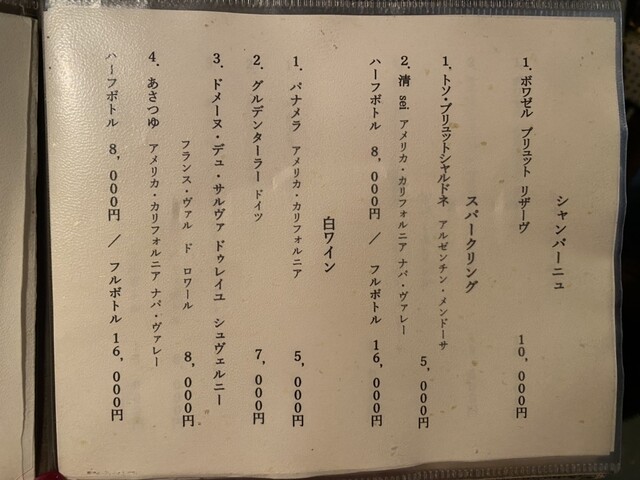 シャンパーニュ
1. ボワゼル ブリュット リザーヴ 10,000円
スパークリング
1. トソ・ブリュットシャルドネ アルゼンチン・メンドーサ
5,000円
2. 清 sei アメリカ・カリフォルニア ナパ・ヴァレー
ハーフボトル 8,000円 / フルボトル 16,000円
白ワイン
1. パナメラ アメリカ・カリフォルニア 5,000円
2. グルデンターラー ドイツ 7,000円
3. ドメーヌ・デュ・サルヴァ ドゥレイユ シュヴェルニー
フランス・ヴァル ド ロワール 8,000円
4. あさつゆ アメリカ・カリフォルニア ナパ・ヴァレー
ハーフボトル 8,000円 / フルボトル 16,000円